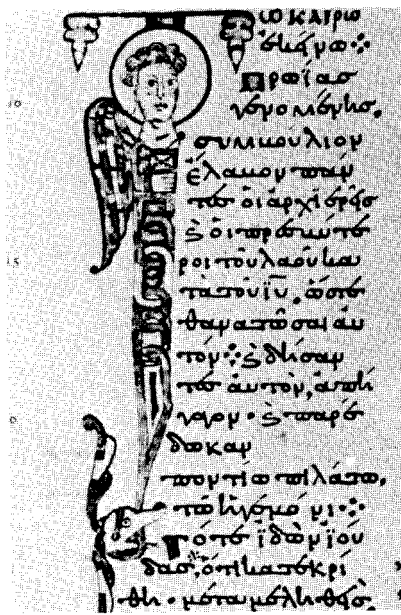 Τῶ καιρῶ
ἐκείνω ⁘
Πρωΐας
γενομένης,
συμβούλιον
ἔλαβον πάν
τες οἱ ἀρχιερεῖς
ϗ οἱ πρεσβύτε
ροι τοῦ λαοῦ κα
τὰ τοῦ ἰῦ, ὥστε
θανατῶσαι αὐ
τόν ⁘ ϗ δήσαν
τες αὐτὸν, ἀπή
γαγον · ϗ παρέ
δωκαν
ποντίω πιλάτω,
τῶ ἡγεμόνι ⁘
Τότε ἰδὼν ἰού
δας, ὅτι κατεκρί
θη · μεταμεληθεὶς